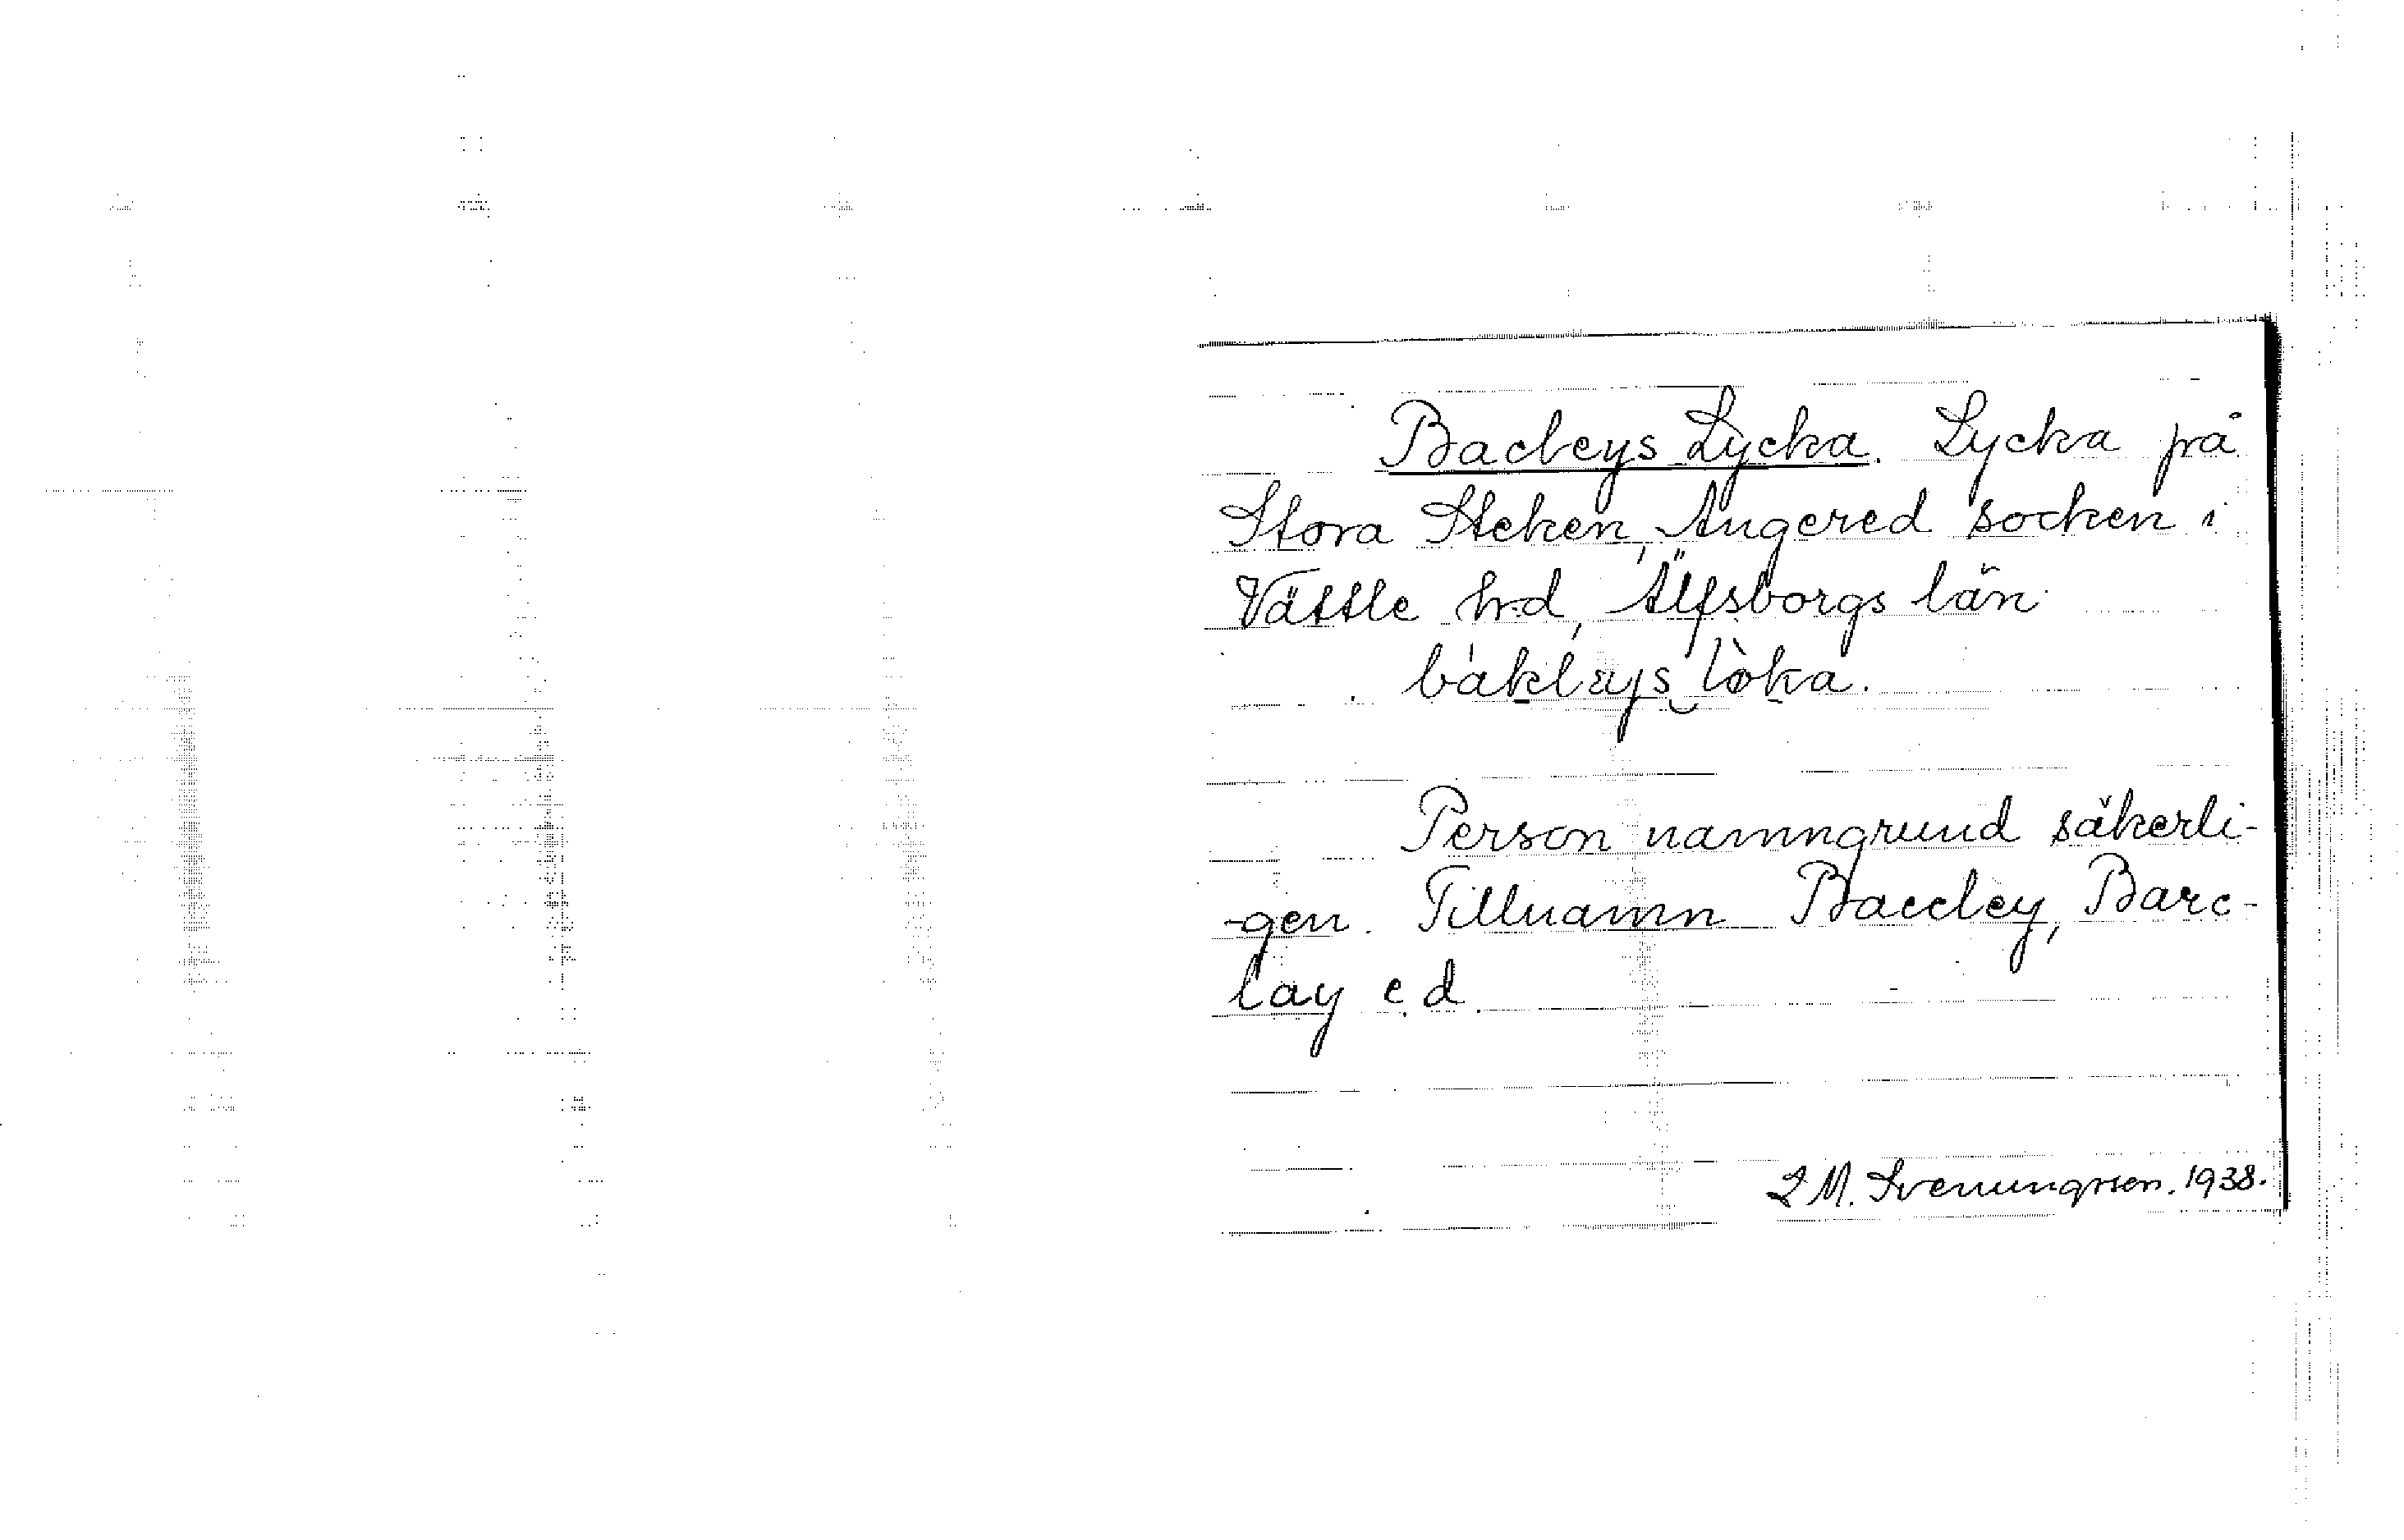 Bacleys Lycka. Lycka på
Stora Steken, Angered socken i
Vättle hrd, Älfsborgs län
bàklays lòka.
Person namngrund säkerli-
-gen. Tillnamn Baccley, Barc-
lay e.d.
L M. Svenungsson. 1938.